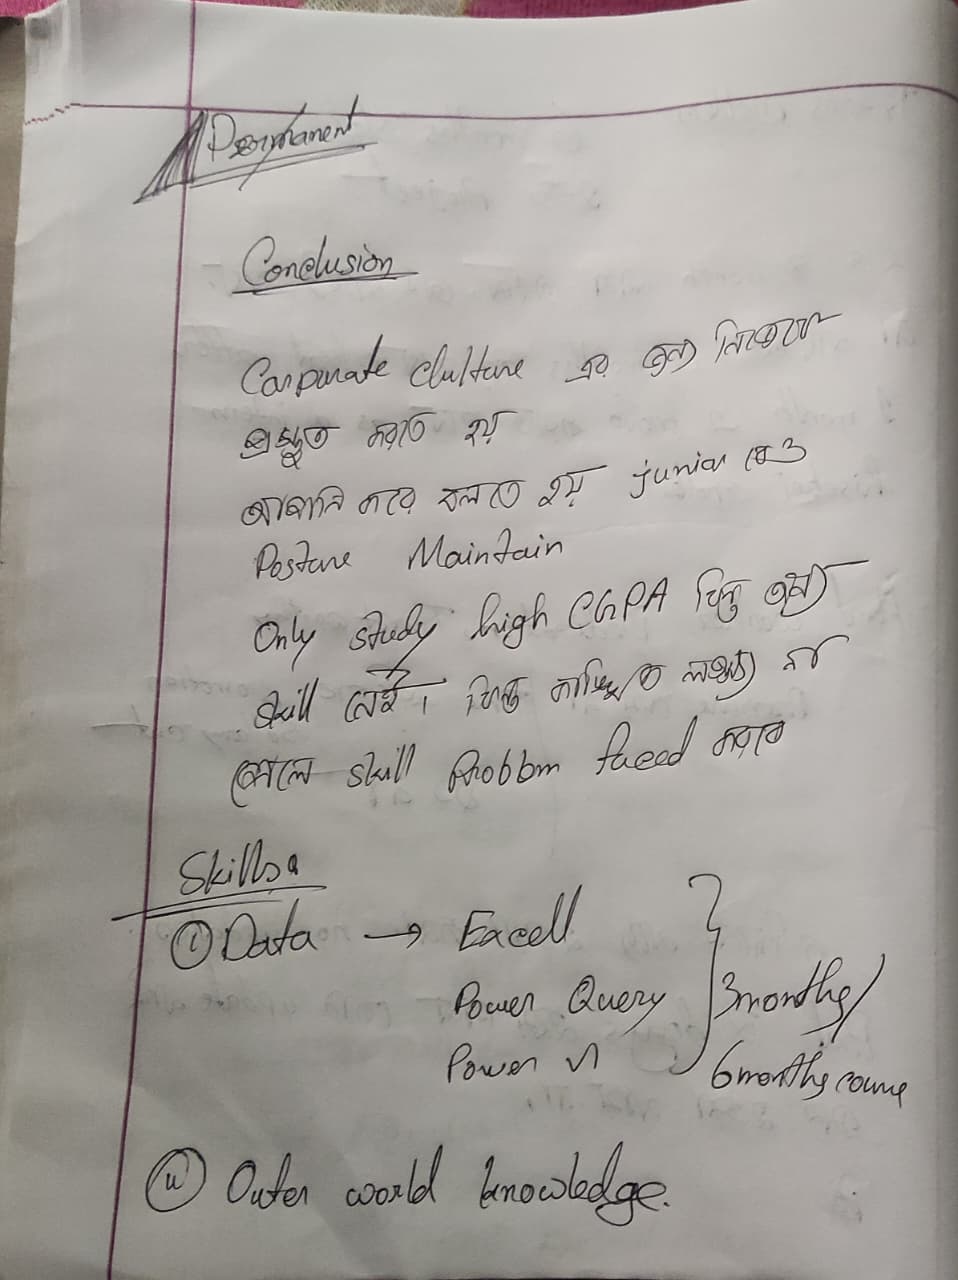 Permanent
Conclusion
Corpurate Clulture এর জন্য নিজেকে
প্রস্তুত করতে হয়
আপনি করে বলতে হয় junior কেও
Posture Maintain
Only study high CGPA কিন্তু অন্য
skill নেই। কিন্তু কাঙ্খিত লক্ষ্য না
পেলে skill Probbm faced করবে
Skills
① Data → Excell
Power Query
Power
3months/
6months course
(ii) Outer world knowledge.